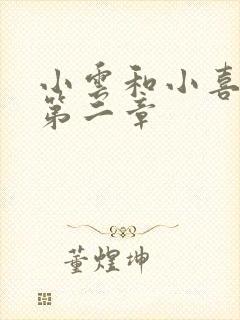 小雲和小喜
第二章
董煌坤